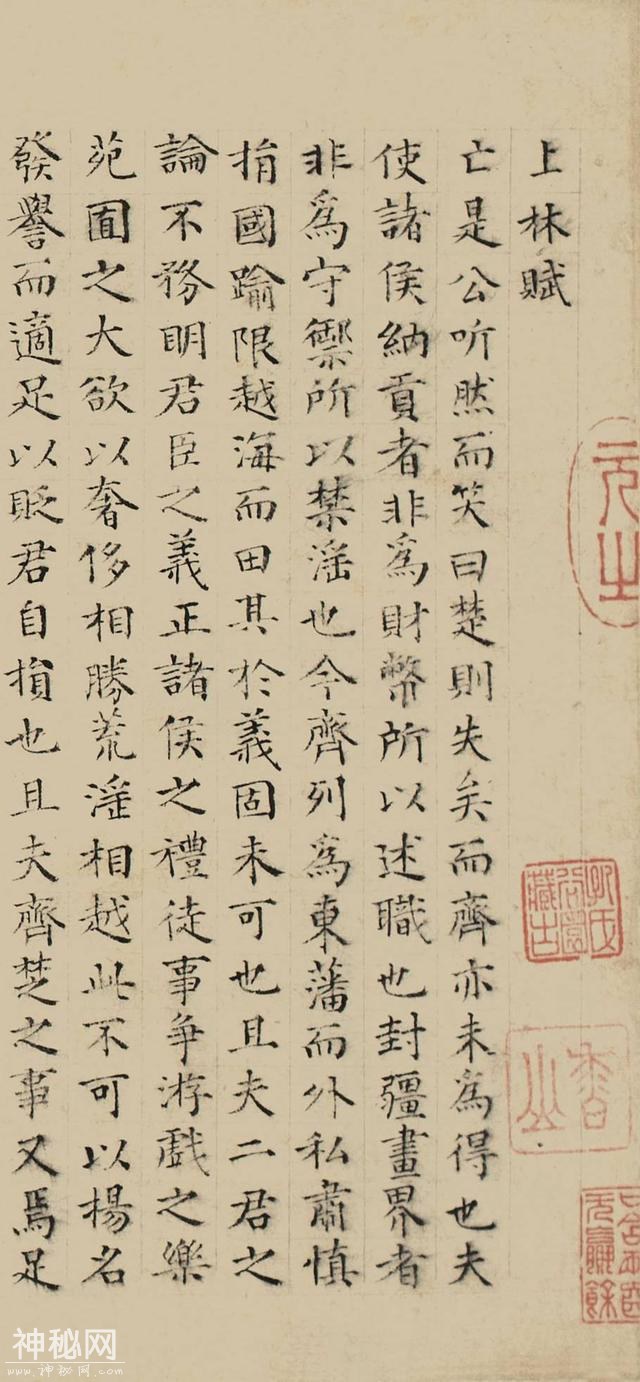 上林賦
亡是公听然而笑曰楚則失矣而齊亦未爲得也夫
使諸侯納貢者非爲財幣所以述職也封疆畫界者
非爲守禦所以禁淫也今齊列爲東藩而外私肅慎
捐國踰限越海而田其於義固未可也且夫二君之
論不務明君臣之義正諸侯之禮徒事爭游戲之樂
苑囿之大欲以奢侈相勝荒淫相越此不可以揚名
發譽而適足以貶君自損也且夫齊楚之事又焉足
神秘网
www.神秘网.com